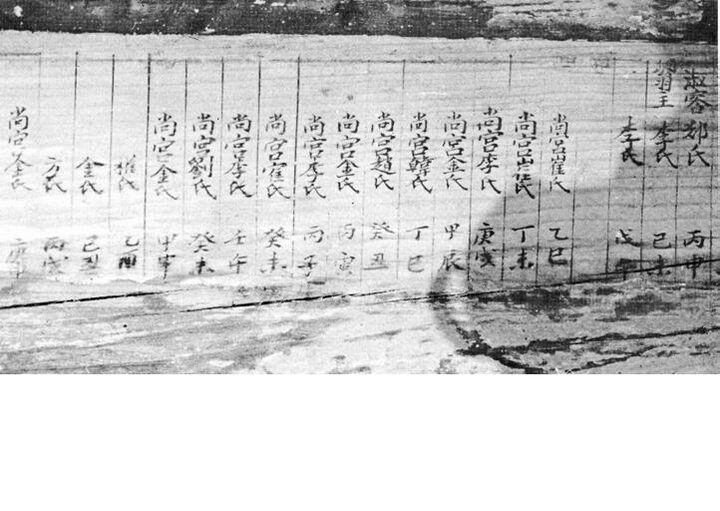 淑容 氏 丙申
李氏 己未
李氏 戊午
尚宮崔氏 乙巳
尚宮崔氏 丁未
尚宮李氏 庚寅
尚宮金氏 甲辰
尚宮韓氏 丁巳
尚宮趙氏 癸丑
尚宮金氏 丙寅
尚宮李氏 丙子
尚宮崔氏 癸未
尚宮李氏 壬午
尚宮劉氏 癸未
尚宮金氏 甲寅
氏 乙酉
金氏 己丑
方氏 丙寅
尚宮金氏